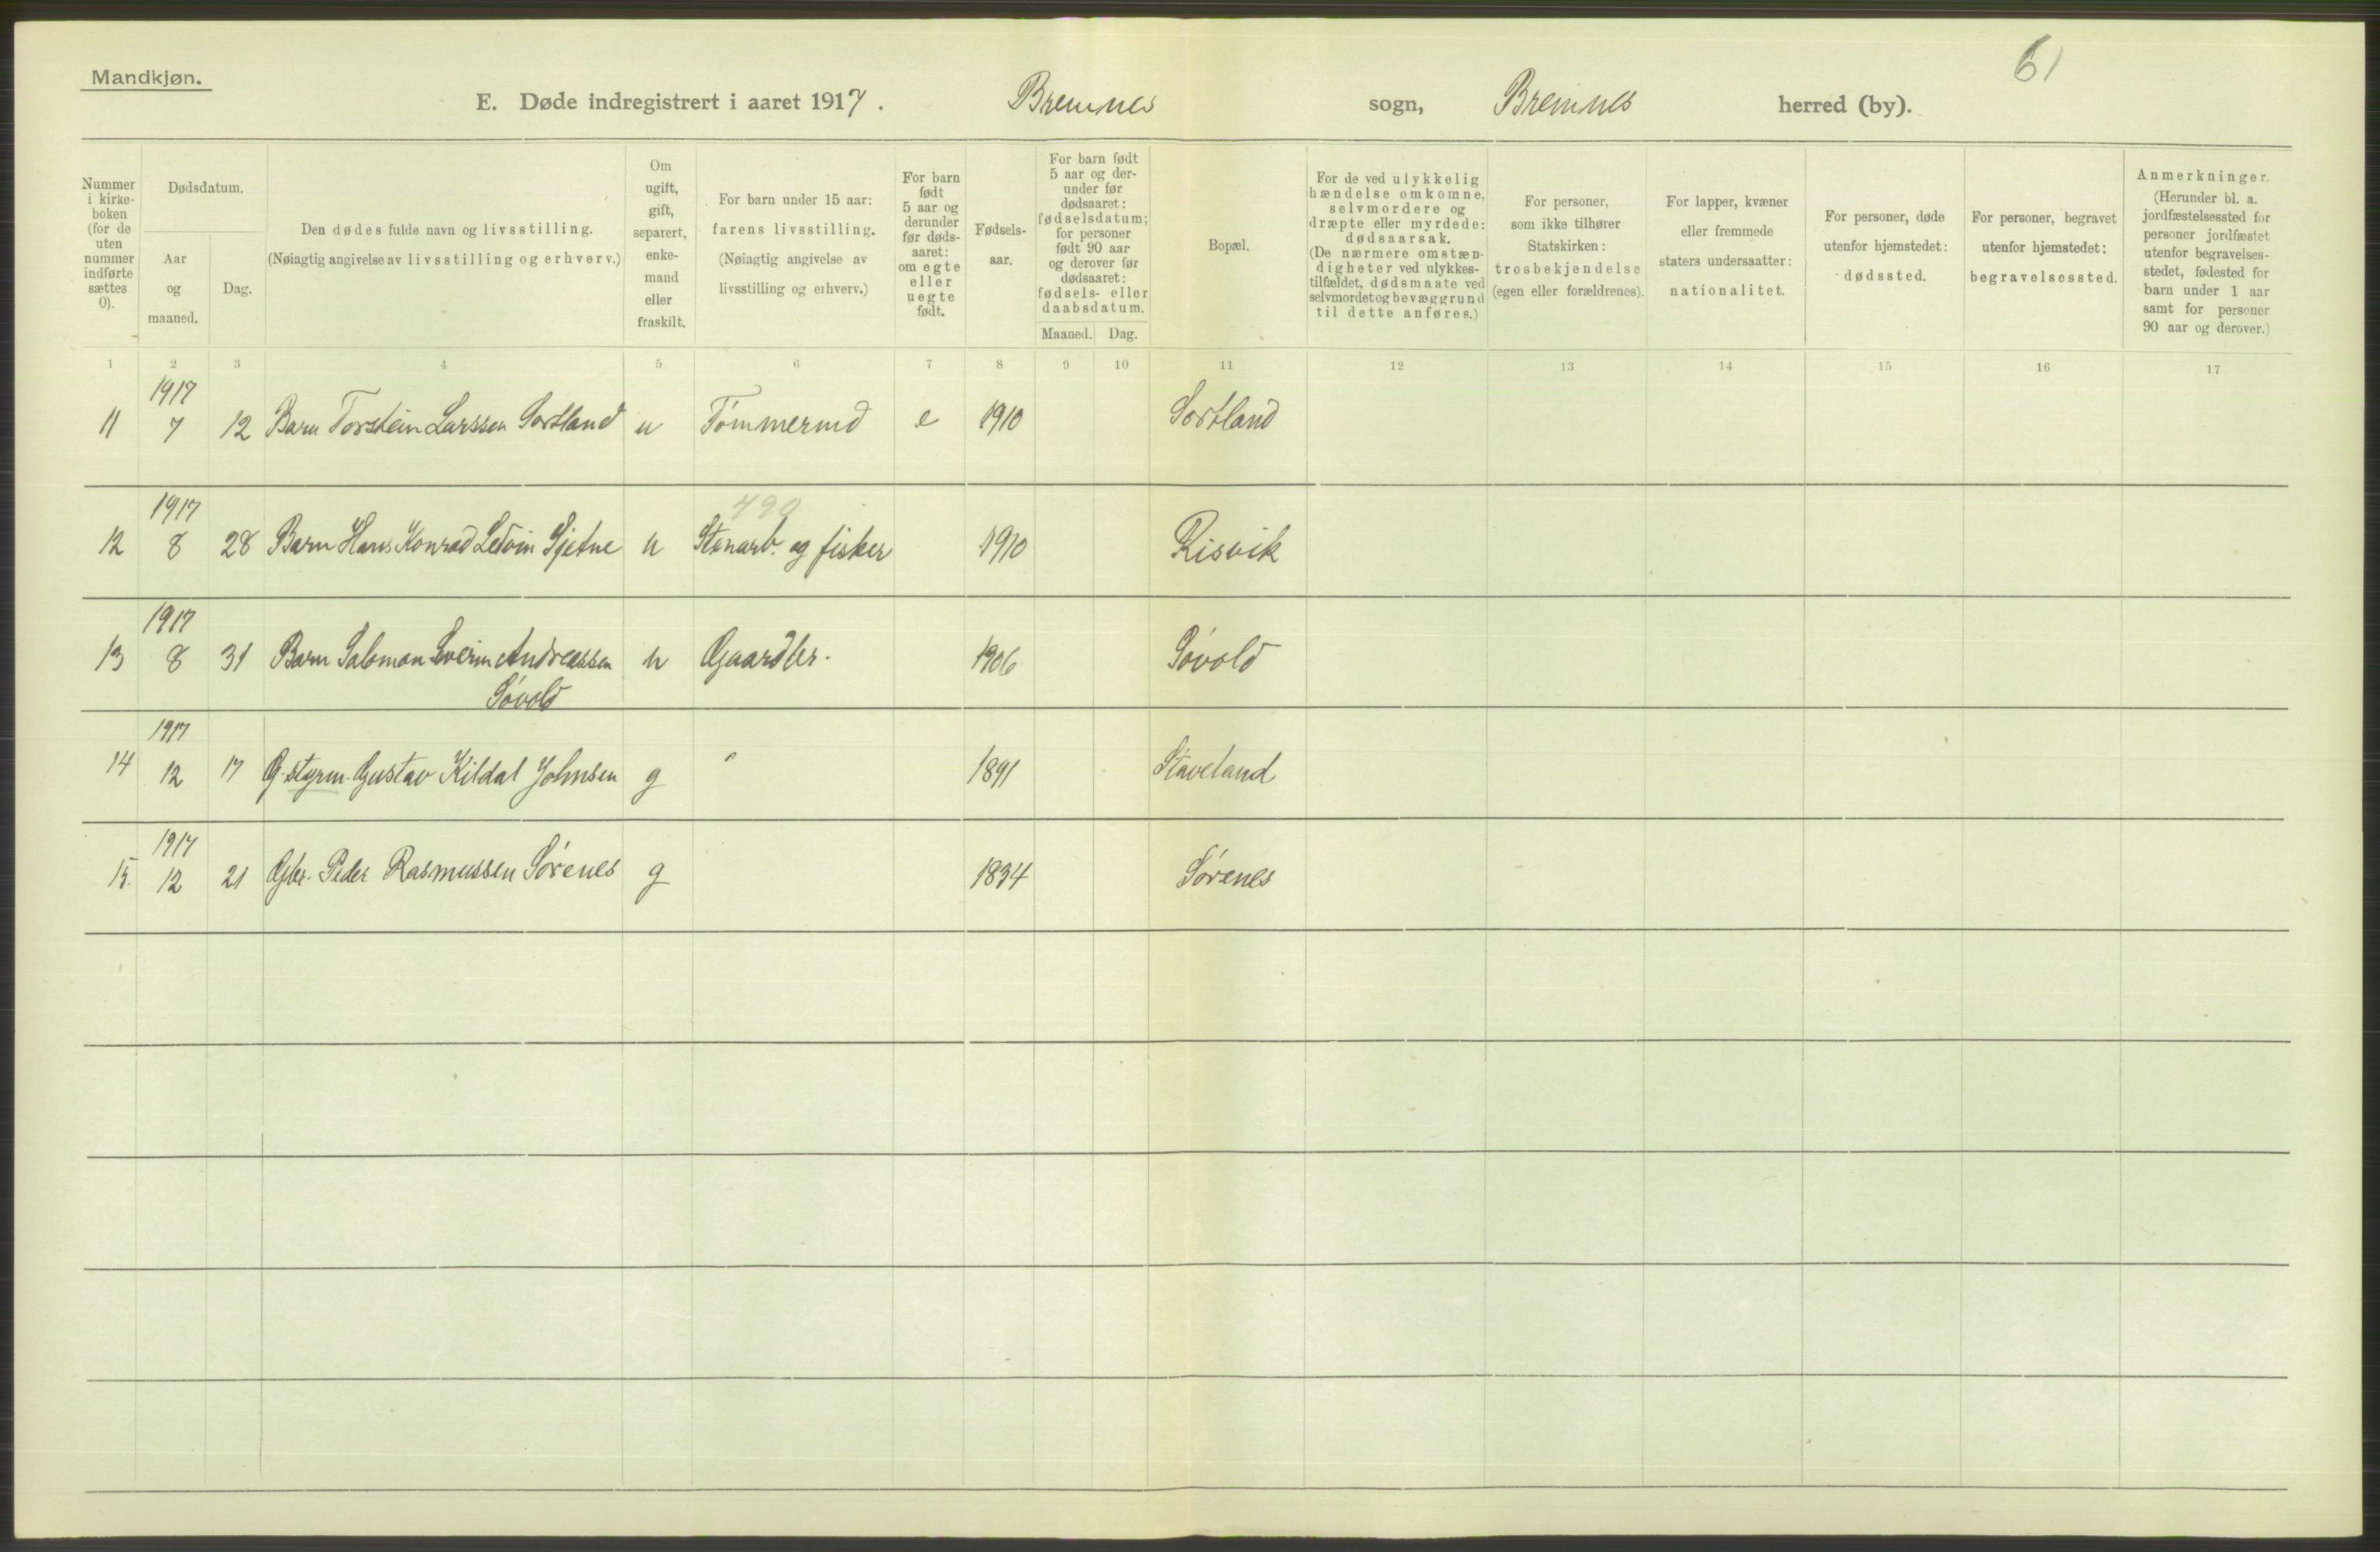 Mandkjøn.
61
E. Døde indregistrert i aaret 1917. Bremnes sogn, Bremnes herred (by).
Nummer i kirke- boken (for de uten nummer indførte sættes 0).
Dødsdatum.
Aar og maaned.
Dag.
Den dødes fulde navn og livsstilling.
(Nøiagtig angivelse av livsstilling og erhverv.)
Om ugift, gift, separert, enke- mand eller fraskilt.
For barn under 15 aar: farens livsstilling. (Nøiagtig angivelse av livsstilling og erhverv.)
For barn født 5 aar og derunder før døds- aaret: om egte eller uegte født.
Fødsels- aar.
For barn født 5 aar og der- under før dødsaaret: fødselsdatum; for personer født 90 aar og derover før dødsaaret: fødsels- eller daabsdatum.
Maaned. Dag.
Bopæl.
For de ved ulykkelig hændelse omkomne, selvmordere og dræpte eller myrdede: dødsaarsak. (De nærmere omstæn- digheter ved ulykkes- tilfældet, dødsmaate ved selvmordet og bevæggrund til dette anføres.)
For personer, som ikke tilhører Statskirken: trosbekjendelse (egen eller forældrenes).
For lapper, kvæner eller fremmede staters undersaatter: nationalitet.
For personer, døde utenfor hjemstedet: dødssted.
For personer, begravet utenfor hjemstedet: begravelsessted.
Anmerkninger. (Herunder bl. a. jordfæstelsessted for personer jordfæstet utenfor begravelses- stedet, fødested for barn under 1 aar samt for personer 90 aar og derover.)
1 2 3 4 5 6 7 8 9 10 11 12 13 14 15 16 17
1917
11 7 12 Barn Torstein Larssen Sortland u Tømmermd e 1910 Sortland
1917 490
12 8 28 Barn Hans Konrad Ledvin Gjetne u Stenarb. og fisker 1910 Risvik
1917
13 8 31 Barn Salomon Severin Andreassen u Gaardbr. 1906 Søvold
Søvold
1917
14 12 17 G. styrm. Gustav Kildal Johnsen g " 1891 Staveland
1917
15. 12 21 Gbr. Peder Rasmussen Sørenes g 1834 Sørenes